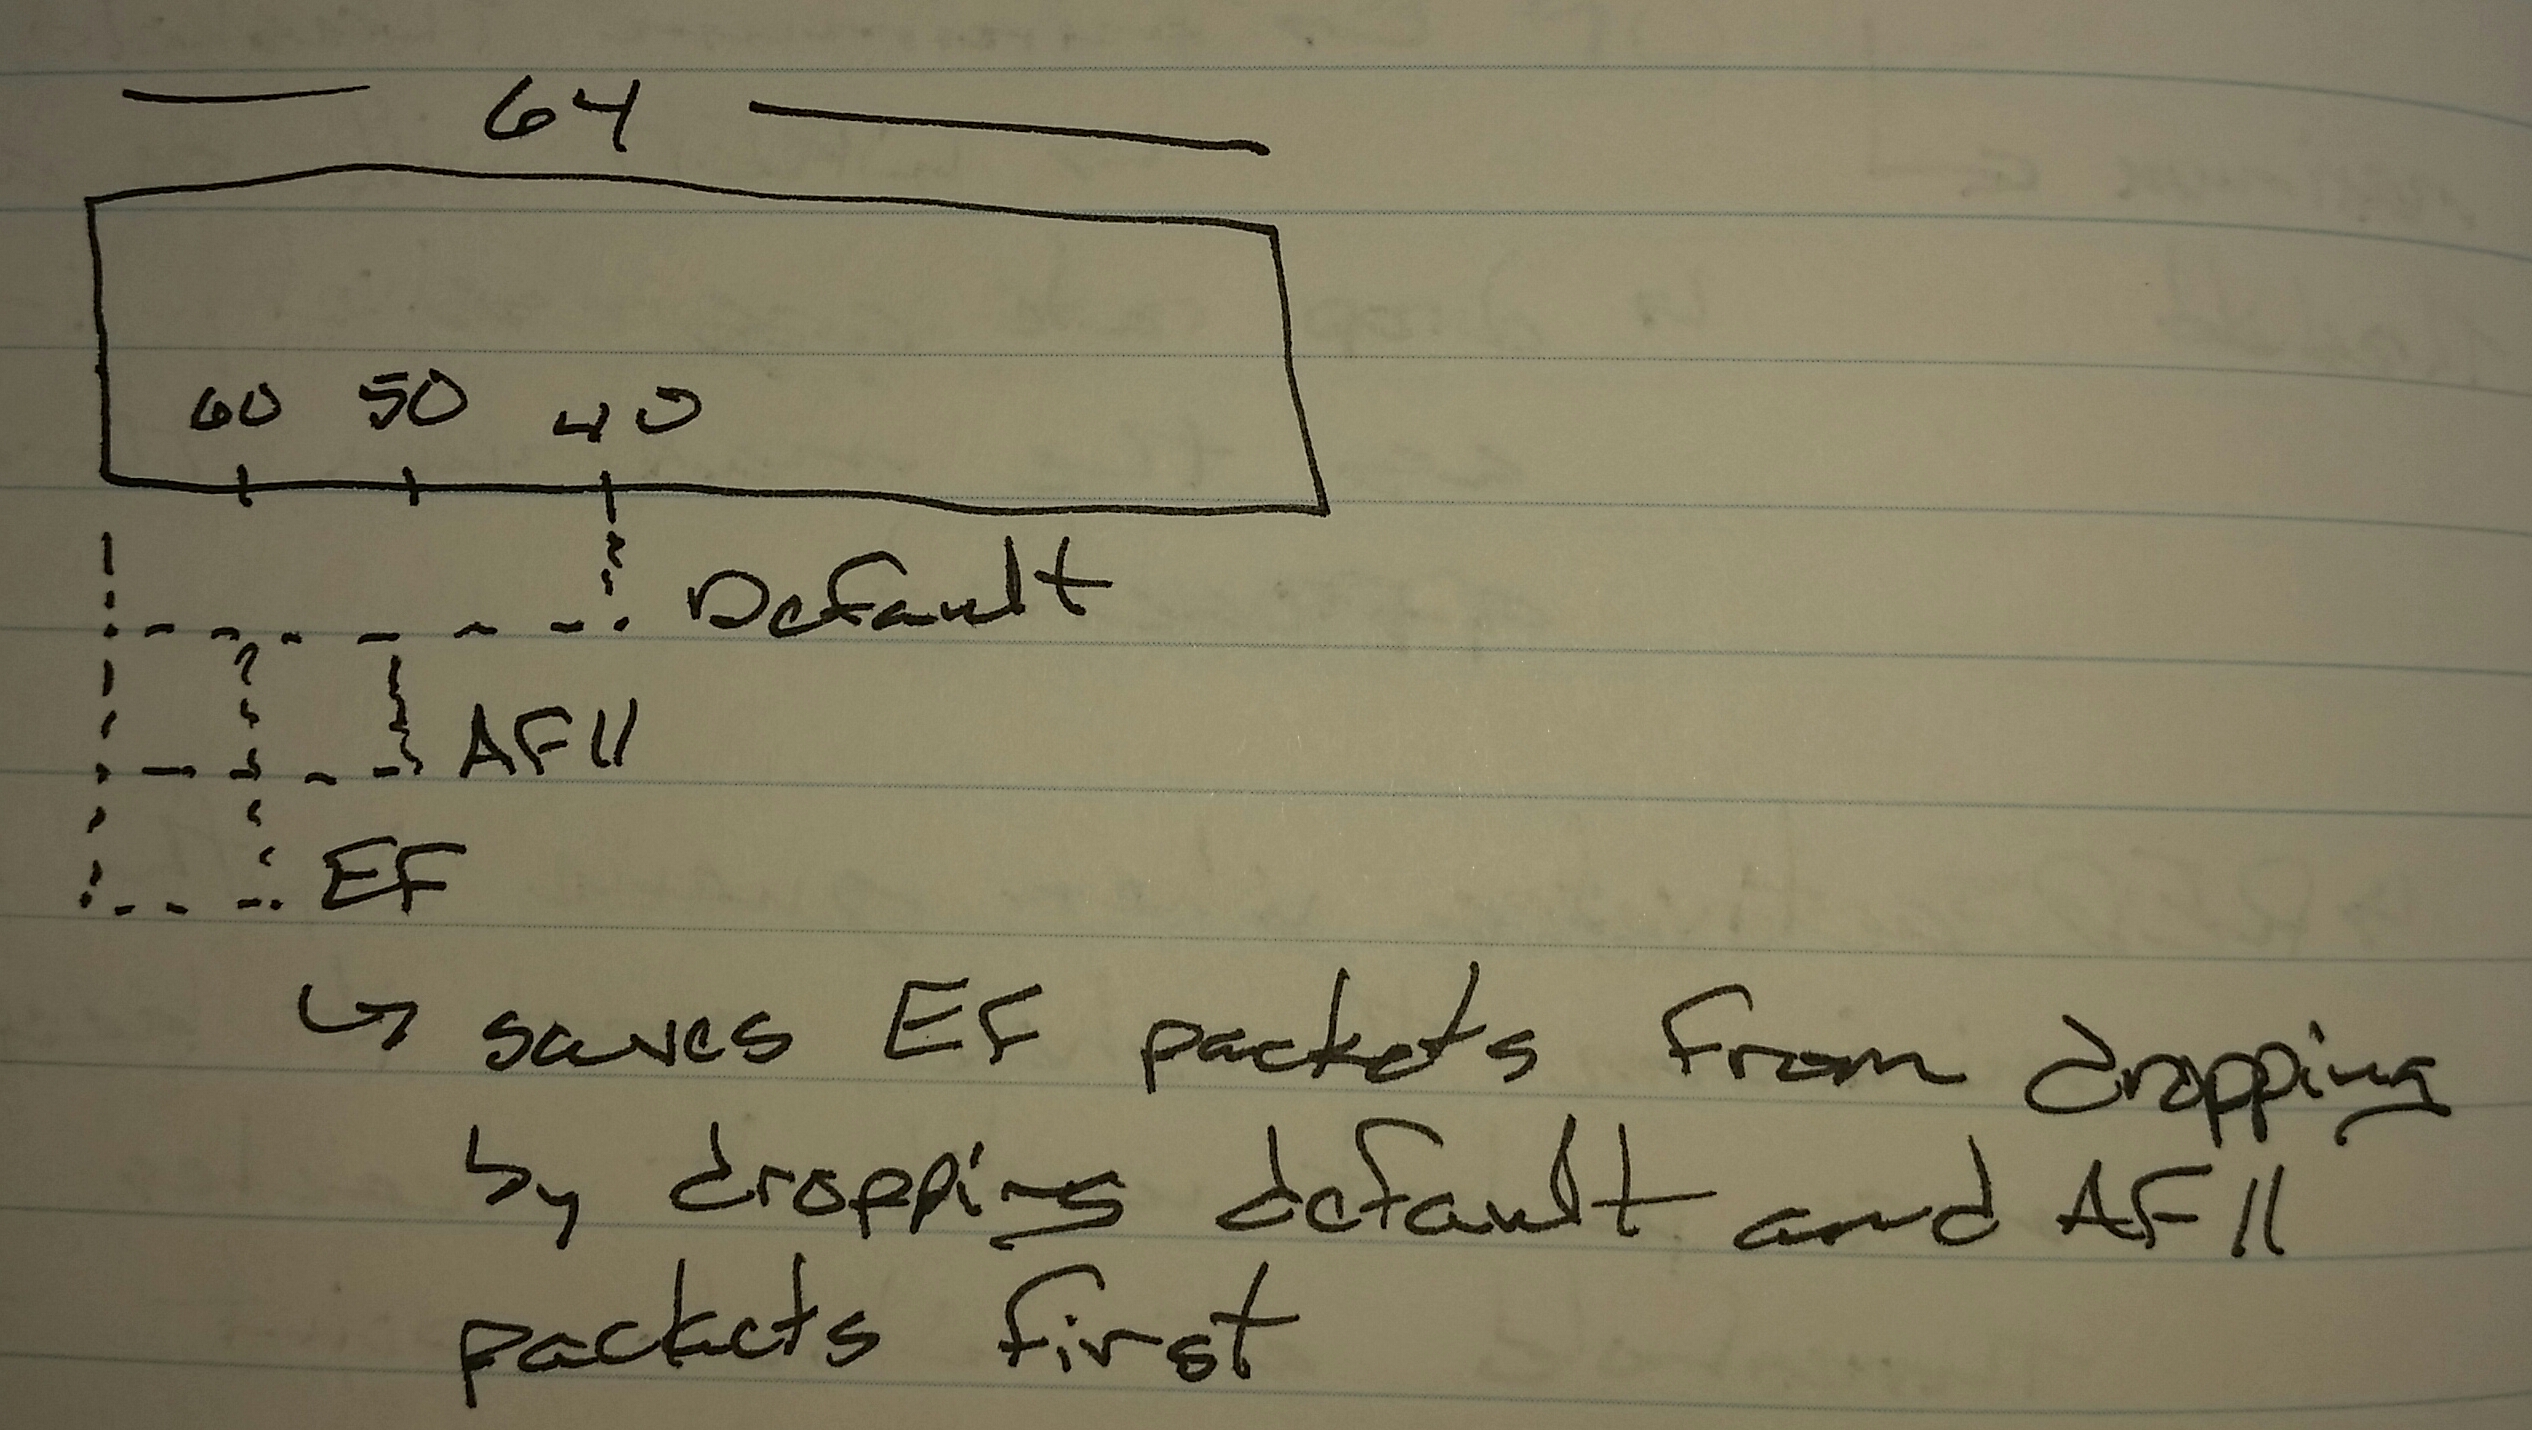 64
60 50 40
Default
AF11
EF
↳ saves EF packets from dropping
by dropping default and AF11
packets first